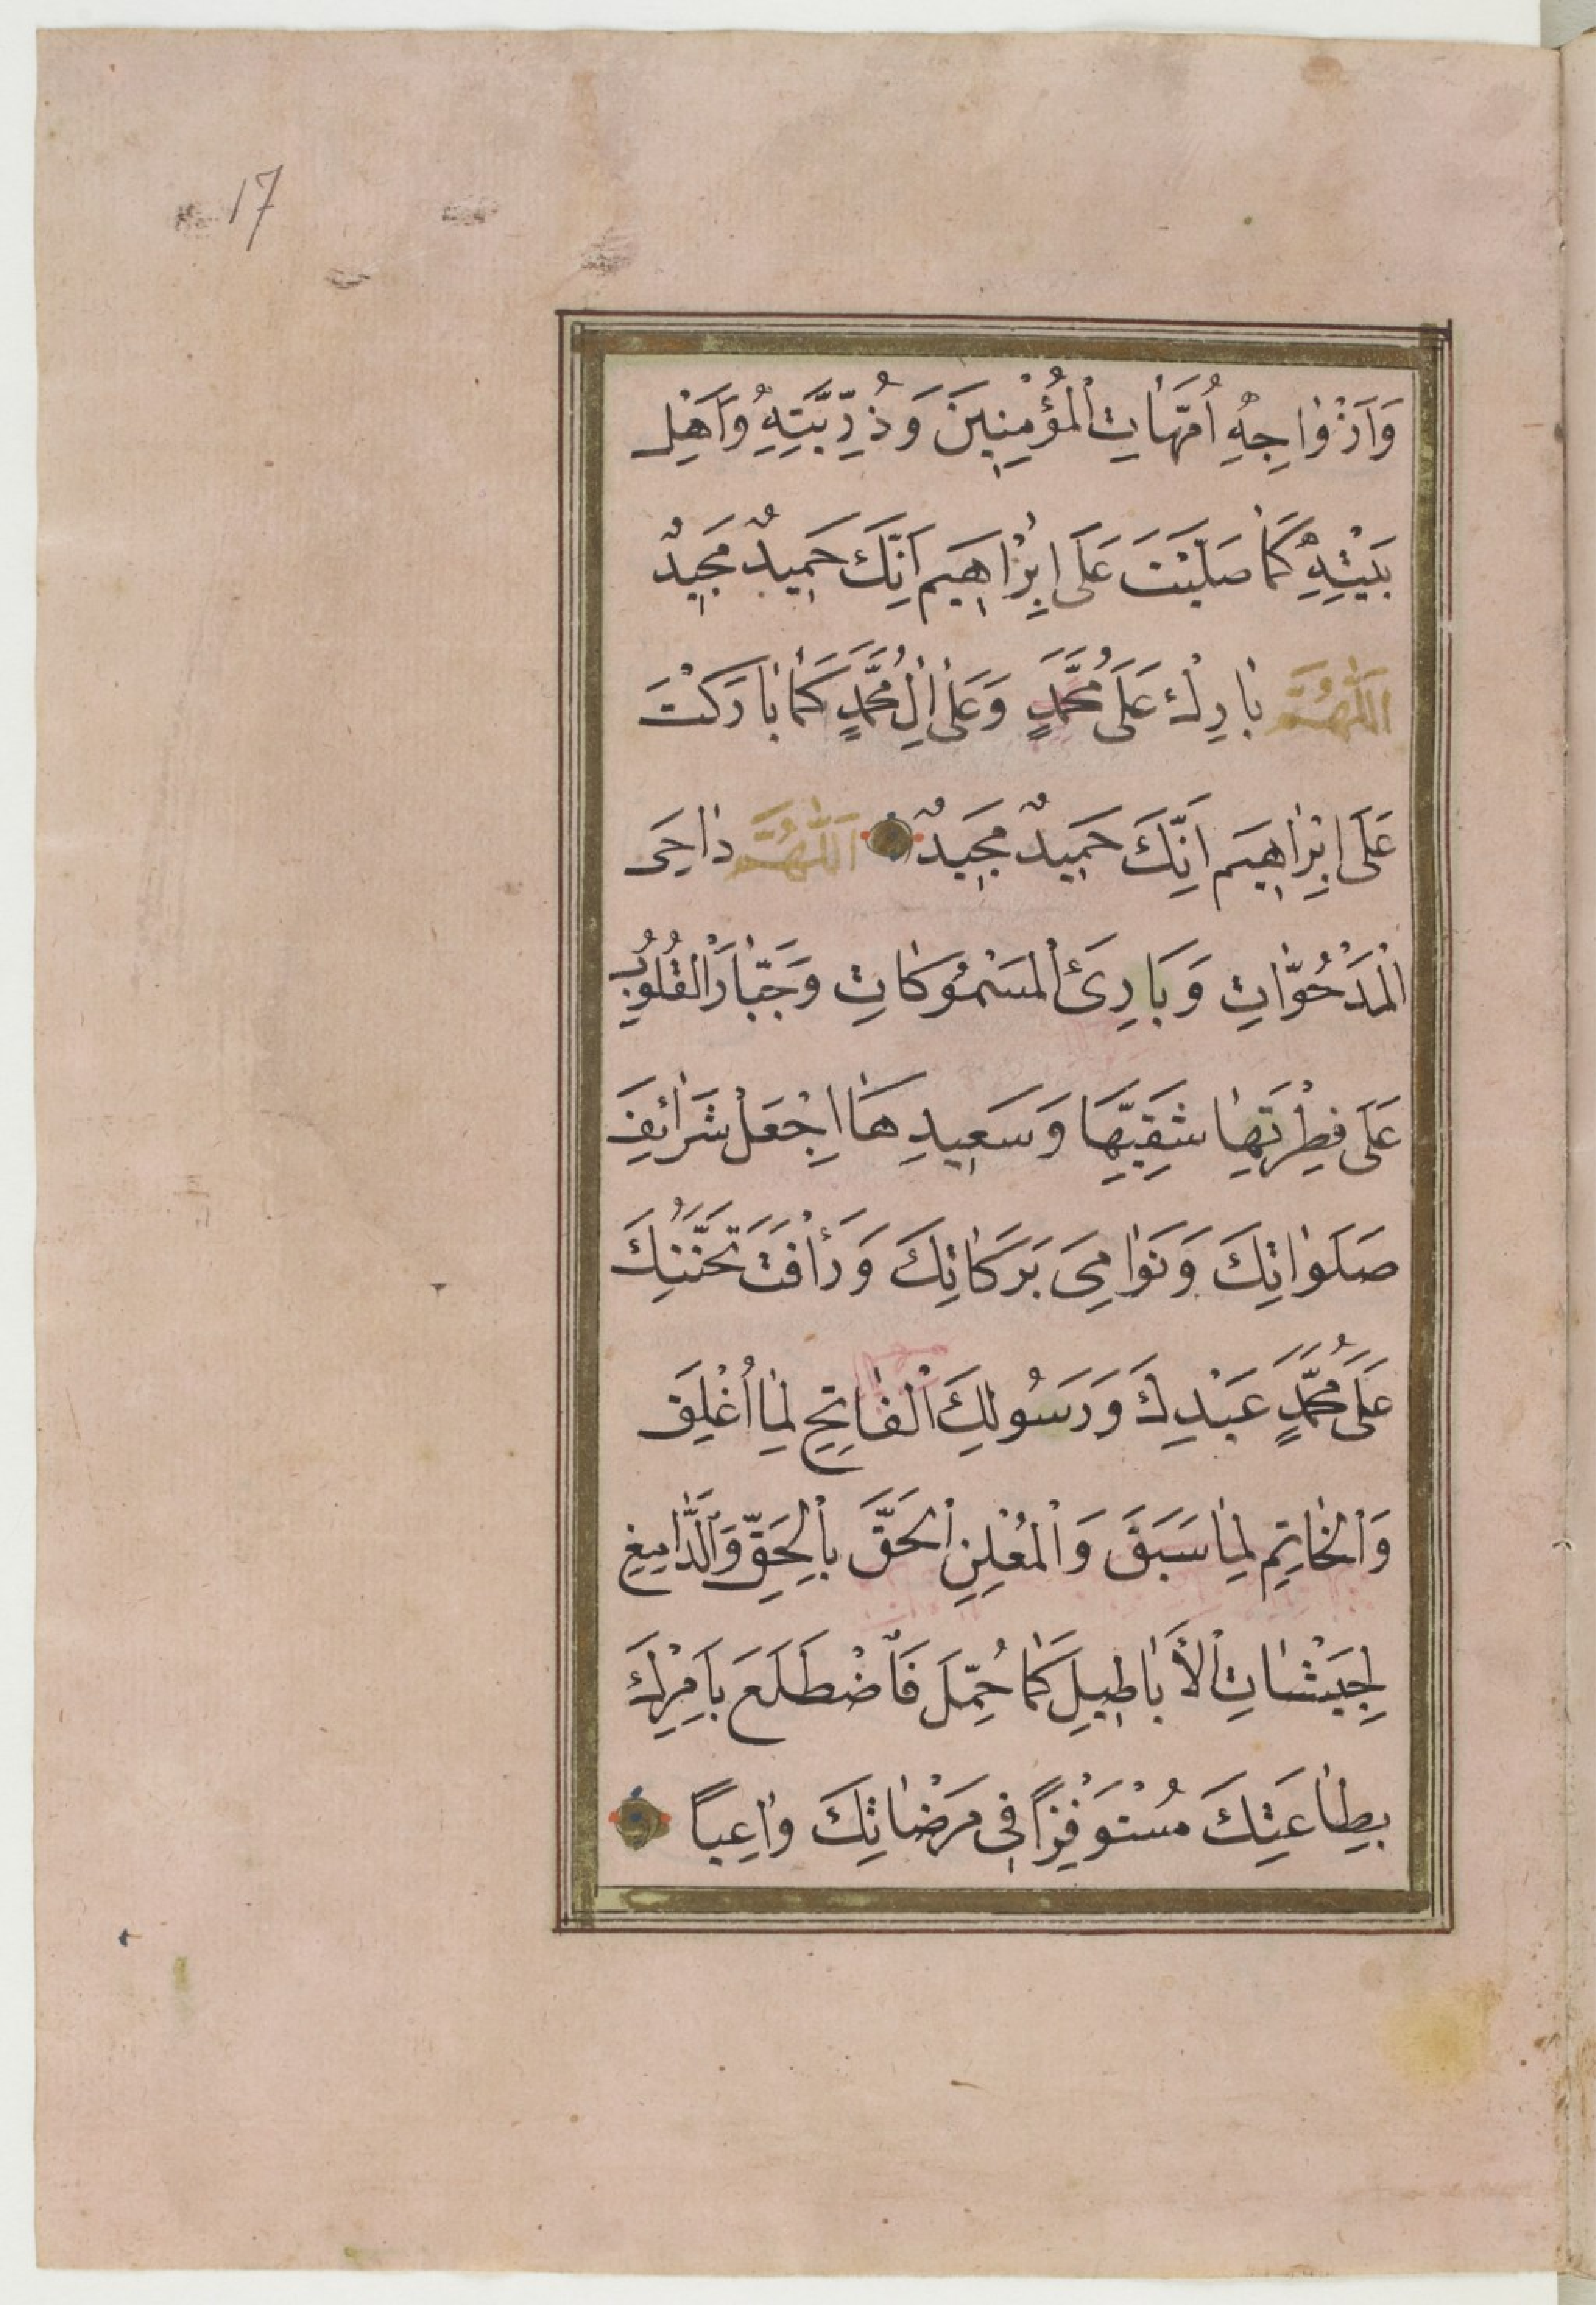 17
وَاَزْوٰاجِهِ اُمَّهَاتِ الْمُؤْمِنِينَ وَذُرِّيَّتِهِ وَاَهْلِ
بَيْتِهِ كَمٰا صَلَّيْتَ عَلَى اِبْرٰاهِيمَ اِنَّكَ حَمِيدٌ مَجِيدٌ
اَللّٰهُمَّ بٰارِكْ عَلَى مُحَمَّدٍ وَعَلٰى اٰلِ مُحَمَّدٍ كَمٰا بٰارَكْتَ
عَلَى اِبْرٰاهِيمَ اِنَّكَ حَمِيدٌ مَجِيدٌ اَللّٰهُمَّ دٰاحِىَ
الْمَدْحُوّٰاتِ وَبَارِئَ الْمَسْمُوكَاتِ وَجَبّٰارَ الْقُلُوبِ
عَلَى فِطْرَتِهٰا شَقِيِّهَا وَسَعِيدِهَا اِجْعَلْ شَرٰائِفَ
صَلَوٰاتِكَ وَنَوٰامِىَ بَرَكَاتِكَ وَرَأْفَتَ تَحَنُّنِكَ
عَلَى مُحَمَّدٍ عَبْدِكَ وَرَسُولِكَ الْفٰاتِحِ لِمٰا اُغْلِقَ
وَالْخٰاتِمِ لِمٰا سَبَقَ وَالْمُعْلِنِ الْحَقَّ بِالْحَقِّ وَالدّٰامِغِ
لِجَيْشٰاتِ الْأَبٰاطِيلِ كَمٰا حُمِّلَ فَاضْطَلَعَ بِاَمْرِكَ
بِطٰاعَتِكَ مُسْتَوْفِزًا فِى مَرْضٰاتِكَ وٰاعِيًا